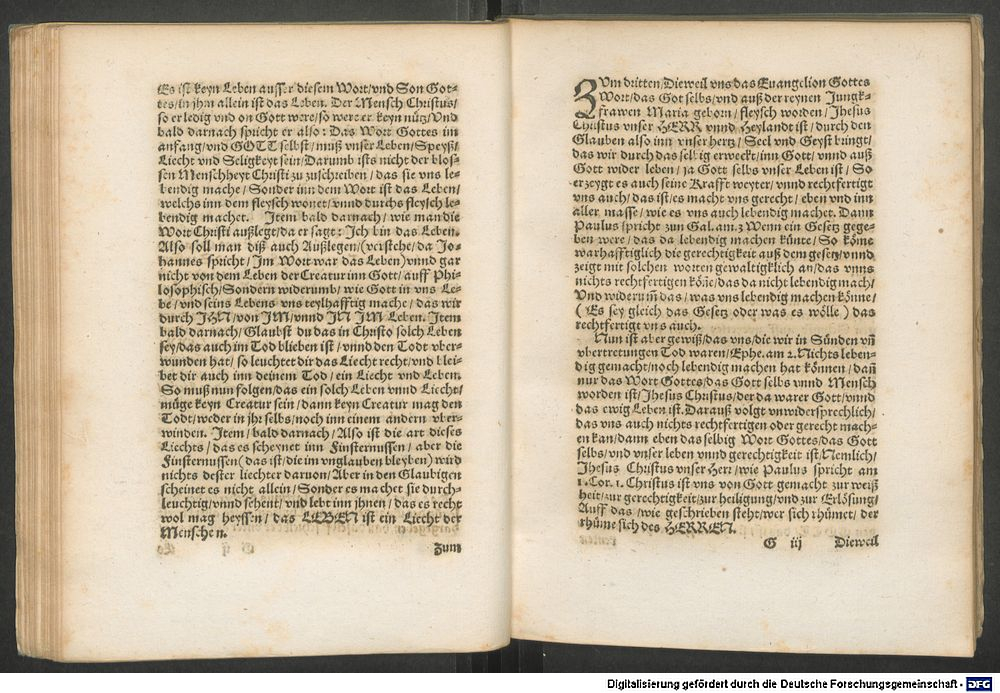 Es ist keyn Leben ausser diesem Wort/vnd Son Got-
tes/in jhm allein ist das Leben. Der Mensch Christus/
so er ledig vnd on Gott were/so were er keyn nütz/Vnd
bald darnach spricht er also: Das Wort Gottes im
anfang/vnd GOTT selbst/muß vnser Leben/Speyß/
Liecht vnd Seligkeyt sein/Darumb ists nicht der blos-
sen Menschheyt Christi zu zuschreiben/das sie vns le-
bendig mache/Sonder inn dem Wort ist das Leben/
welchs inn dem fleysch wonet/vnnd durchs fleysch le-
bendig machet. Jtem bald darnach/wie man die
Wort Christi außlegt/da er sagt: Jch bin das Leben.
Also soll man diß auch Außlegen/(verstehe/da Jo-
hannes spricht/Jm Wort war das Leben)vnnd gar
nicht von dem Leben der Creatur inn Gott/auff Phi-
losophisch/Sondern widerumb/wie Gott in vns Le-
be/vnd seins Lebens vns teylhafftig mache/das wir
durch JHN/von JM/vnnd JN JM Leben. Jtem
bald darnach/Glaubst du das in Christo solch Leben
sey/das auch im Tod blieben ist/vnnd den Todt vber-
wunden hat/so leuchtet dir das Liecht recht/vnd blei-
bet dir auch inn deinem Tod/ein Liecht vnd Leben.
So muß nun folgen/das ein solch Leben vnnd Liecht/
müge keyn Creatur sein/dann keyn Creatur mag den
Todt/weder in jhr selbs/noch inn einem andern vber-
winden. Jtem/bald darnach/Also ist die art dieses
Liechts/das es scheynet inn Finsternussen/aber die
Finsternussen(das ist/die im vnglauben bleyben)wird
nichts dester liechter daruon/Aber in den Glaubigen
scheinet es nicht allein/Sonder es machet sie durch-
leuchtig/vnnd sehent/vnd lebt inn jhnen/das es recht
wol mag heyssen/das LEBEN ist ein Liecht der
Menschen.
Zum
ZVm dritten/Dieweil vns das Euangelion Gottes
Wort/das Got selbs/vnd auß der reynen Jungk-
frawen Maria geborn/fleysch worden/Jhesus
Christus vnser HERR vnnd Heylandt ist/durch den
Glauben also inn vnser hertz/Seel vnd Geyst bringt/
das wir durch das selbig erweckt/inn Gott/vnnd auß
Gott wider leben/ja Gott selbs vnser Leben ist/So
erzeygt es auch seine Krafft weyter/vnnd rechtfertigt
vns auch/das ist/es macht vns gerecht/eben vnd inn
aller masse/wie es vns auch lebendig machet. Dann
Paulus spricht zun Gal.am.3 Wenn ein Gesetz gege-
ben were/das da lebendig machen künte/So köme
warhafftiglich die gerechtigkeit auß dem gesetz/vnnd
zeigt mit solchen worten gewaltigklich an/das vnns
nichts rechtfertigen köñe/das da nicht lebendig mach/
Vnd widerum̃ das/was vns lebendig machen könne/
(Es sey gleich das Gesetz oder was es wölle)das
rechtfertigt vns auch.
Nun ist aber gewiß/das vns/die wir in Sünden vñ
vbertretungen Tod waren/Ephe.am 2. Nichts leben-
dig gemacht/noch lebendig machen hat können/dañ
nur das Wort Gottes/das Gott selbs vnnd Mensch
worden ist/Jhesus Christus/der da warer Gott/vnnd
das ewig Leben ist. Darauß volgt vnwidersprechlich/
das vns auch nichts rechtfertigen oder gerecht mach-
en kan/dann eben das selbig Wort Gottes/das Gott
selbs/vnd vnser leben vnnd gerechtigkeit ist/Nemlich/
Jhesus Christus vnser Herr/wie Paulus spricht am
1. Cor. 1. Christus ist vns von Gott gemacht zur weiß
heit/zur gerechtigkeit/zur heiligung/vnd zur Erlösung/
Auff das/wie geschrieben steht/wer sich rhümet/der
rhüme sich des HERREN.
G iij Dieweil
Digitalisierung gefördert durch die Deutsche Forschungsgemeinschaft - DFG